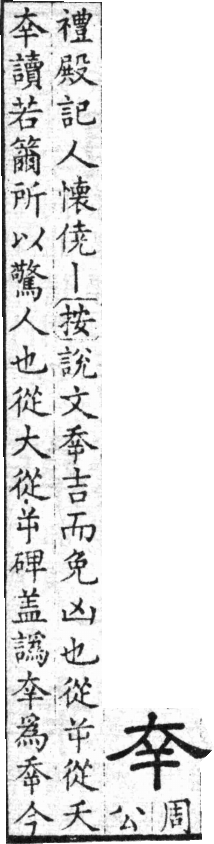 㚔
周
公
禮殿記人懷僥丨按說文𡴘吉而免凶也從屰從夭
㚔讀若籋所以驚人也從大從𢆉碑盖譌㚔爲𡴘今